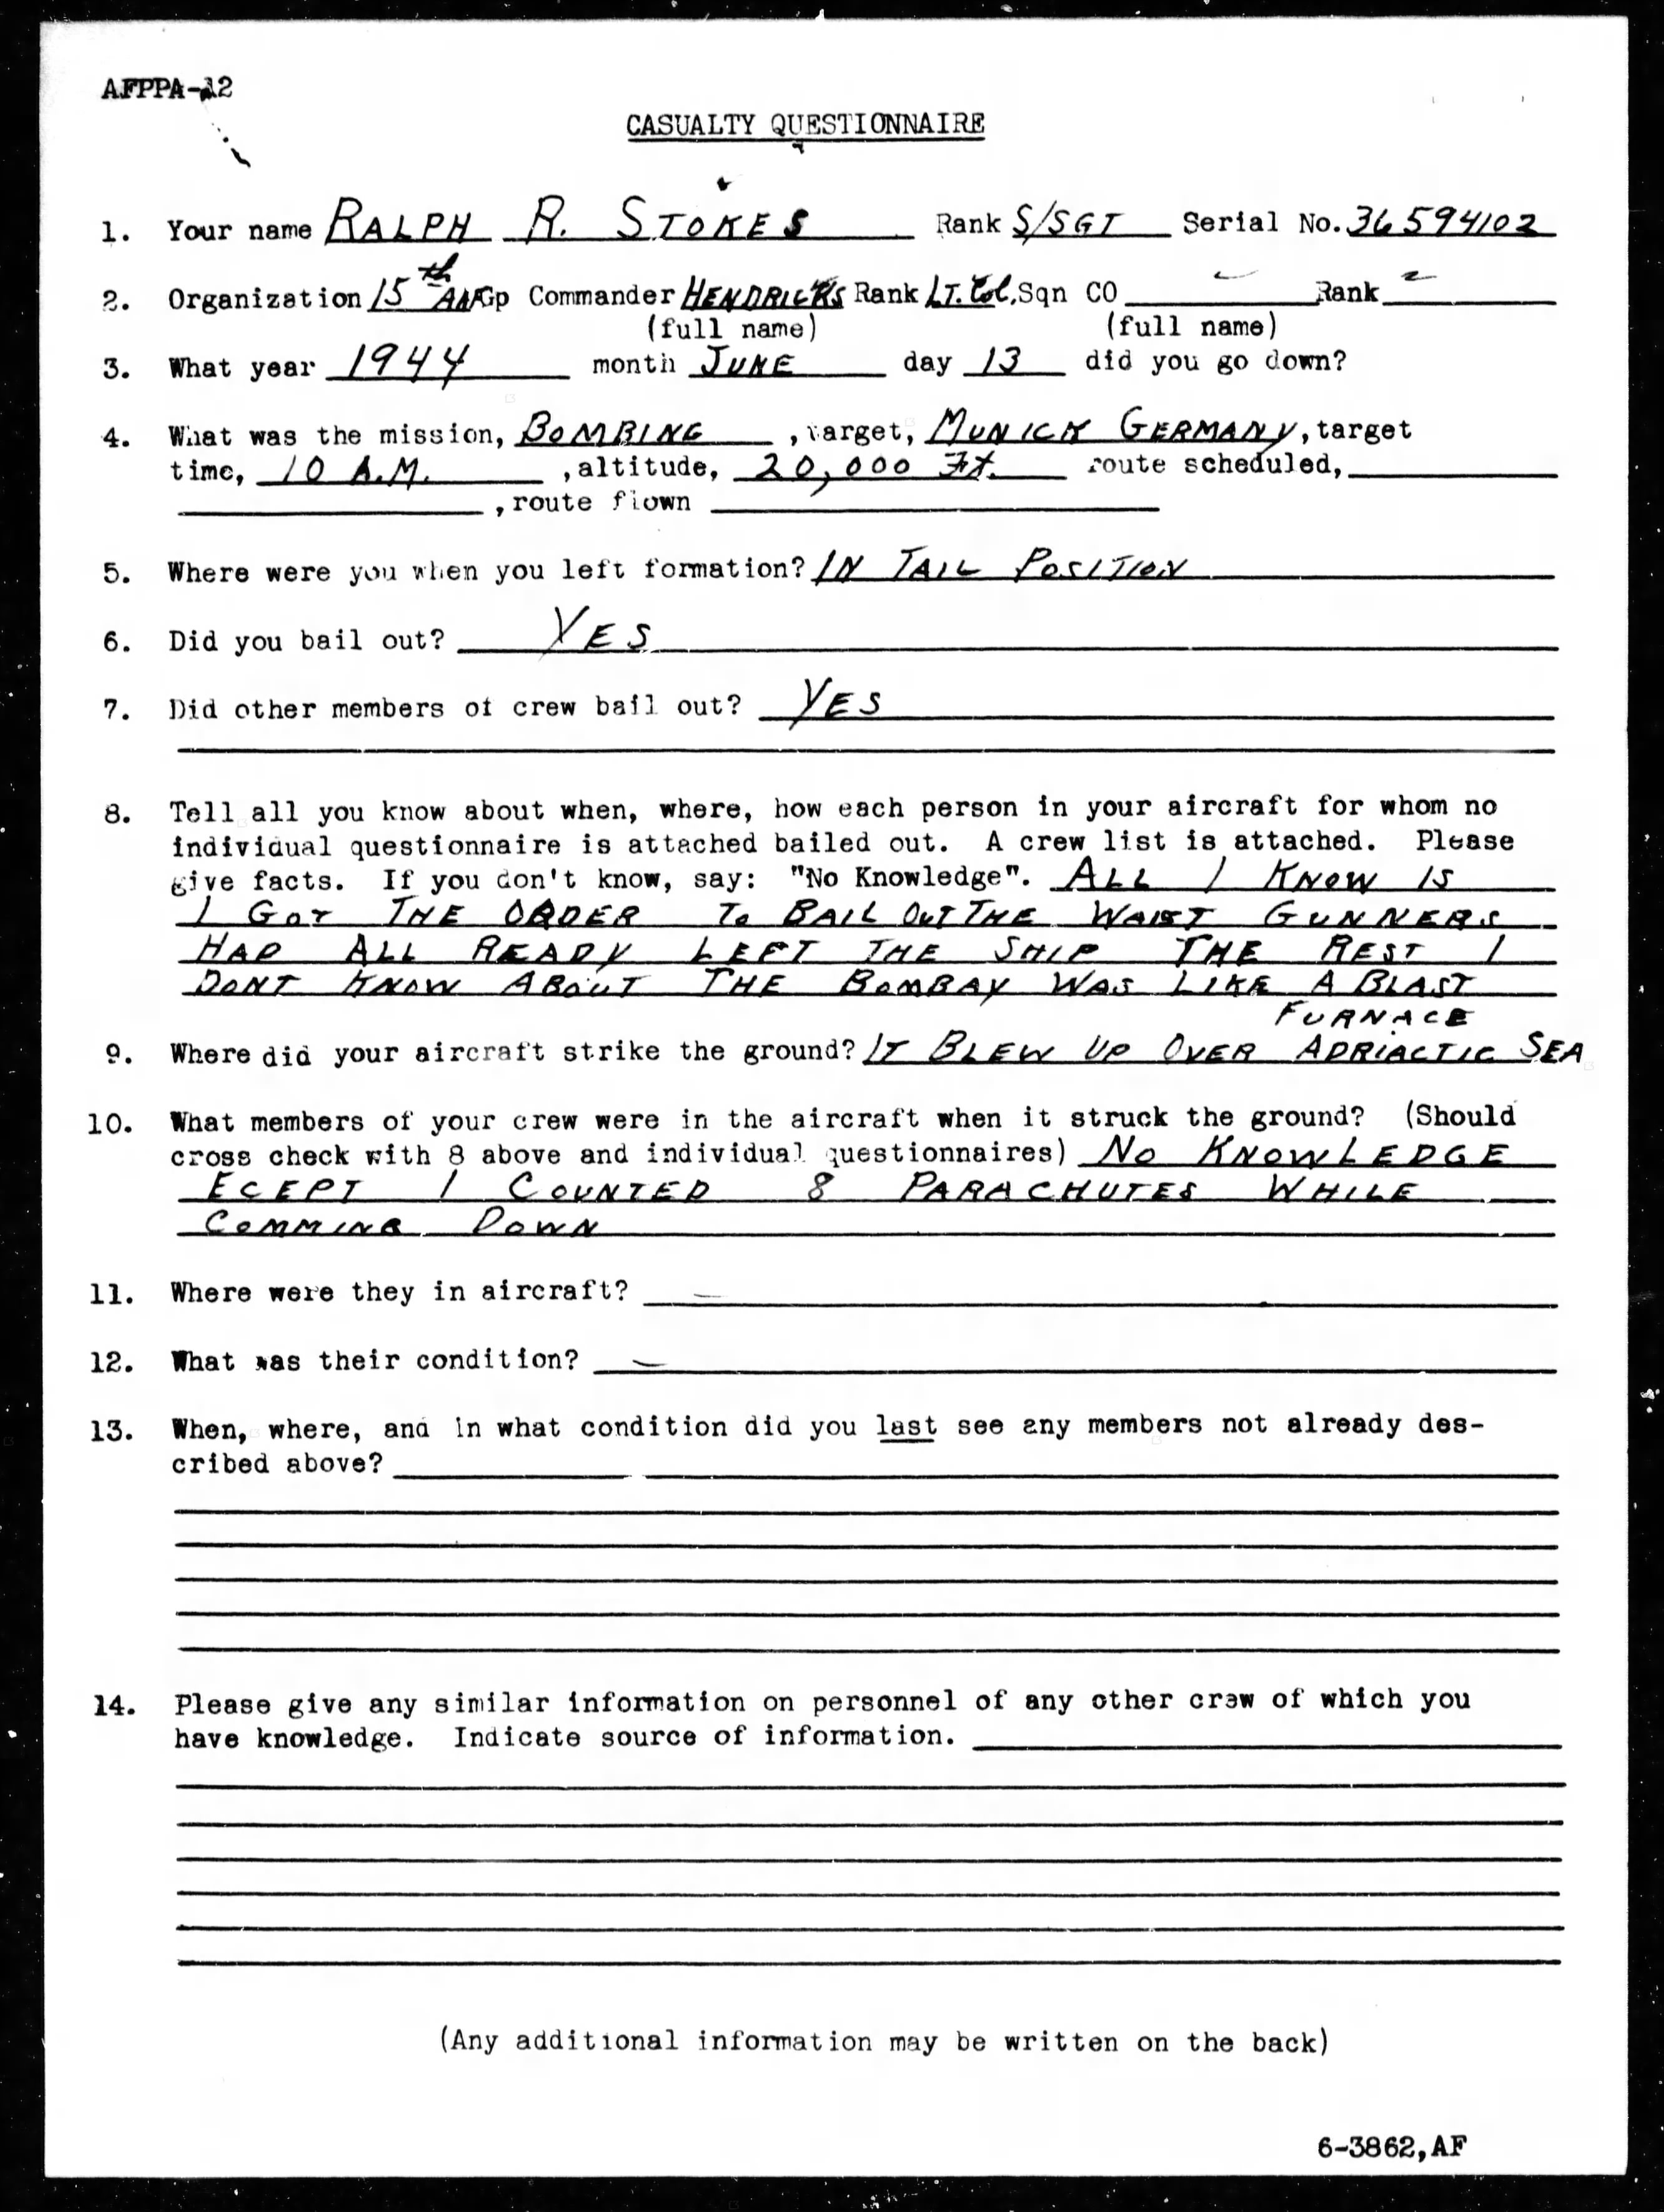 AFPPA-12
CASUALTY QUESTIONNAIRE
1. Your name RALPH R. STOKES Rank S/SGT Serial No. 36594102
2. Organization 15th AAF Gp Commander HENDRICKS Rank LT. Col. Sqn CO Rank
(full name) (full name)
3. What year 1944 month JUNE day 13 did you go down?
4. What was the mission, BOMBING, target, MUNICK GERMANY, target
time, 10 A.M., altitude, 20,000 Ft. route scheduled,
, route flown
5. Where were you when you left formation? IN TAIL POSITION
6. Did you bail out? YES
7. Did other members of crew bail out? YES
8. Tell all you know about when, where, how each person in your aircraft for whom no
individual questionnaire is attached bailed out. A crew list is attached. Please
give facts. If you don't know, say: "No Knowledge". ALL I KNOW IS
I GOT THE ORDER TO BAIL OUT THE WAIST GUNNERS
HAD ALL READY LEFT THE SHIP THE REST I
DONT KNOW ABOUT THE BOMBAY WAS LIKE A BLAST
FURNACE
9. Where did your aircraft strike the ground? IT BLEW UP OVER ADRIACTIC SEA
10. What members of your crew were in the aircraft when it struck the ground? (Should
cross check with 8 above and individual questionnaires) NO KNOWLEDGE
ECEPT I COUNTED 8 PARACHUTES WHILE
COMMING DOWN
11. Where were they in aircraft? —
12. What was their condition? —
13. When, where, and in what condition did you last see any members not already des-
cribed above?
14. Please give any similar information on personnel of any other crew of which you
have knowledge. Indicate source of information.
(Any additional information may be written on the back)
6-3862,AF